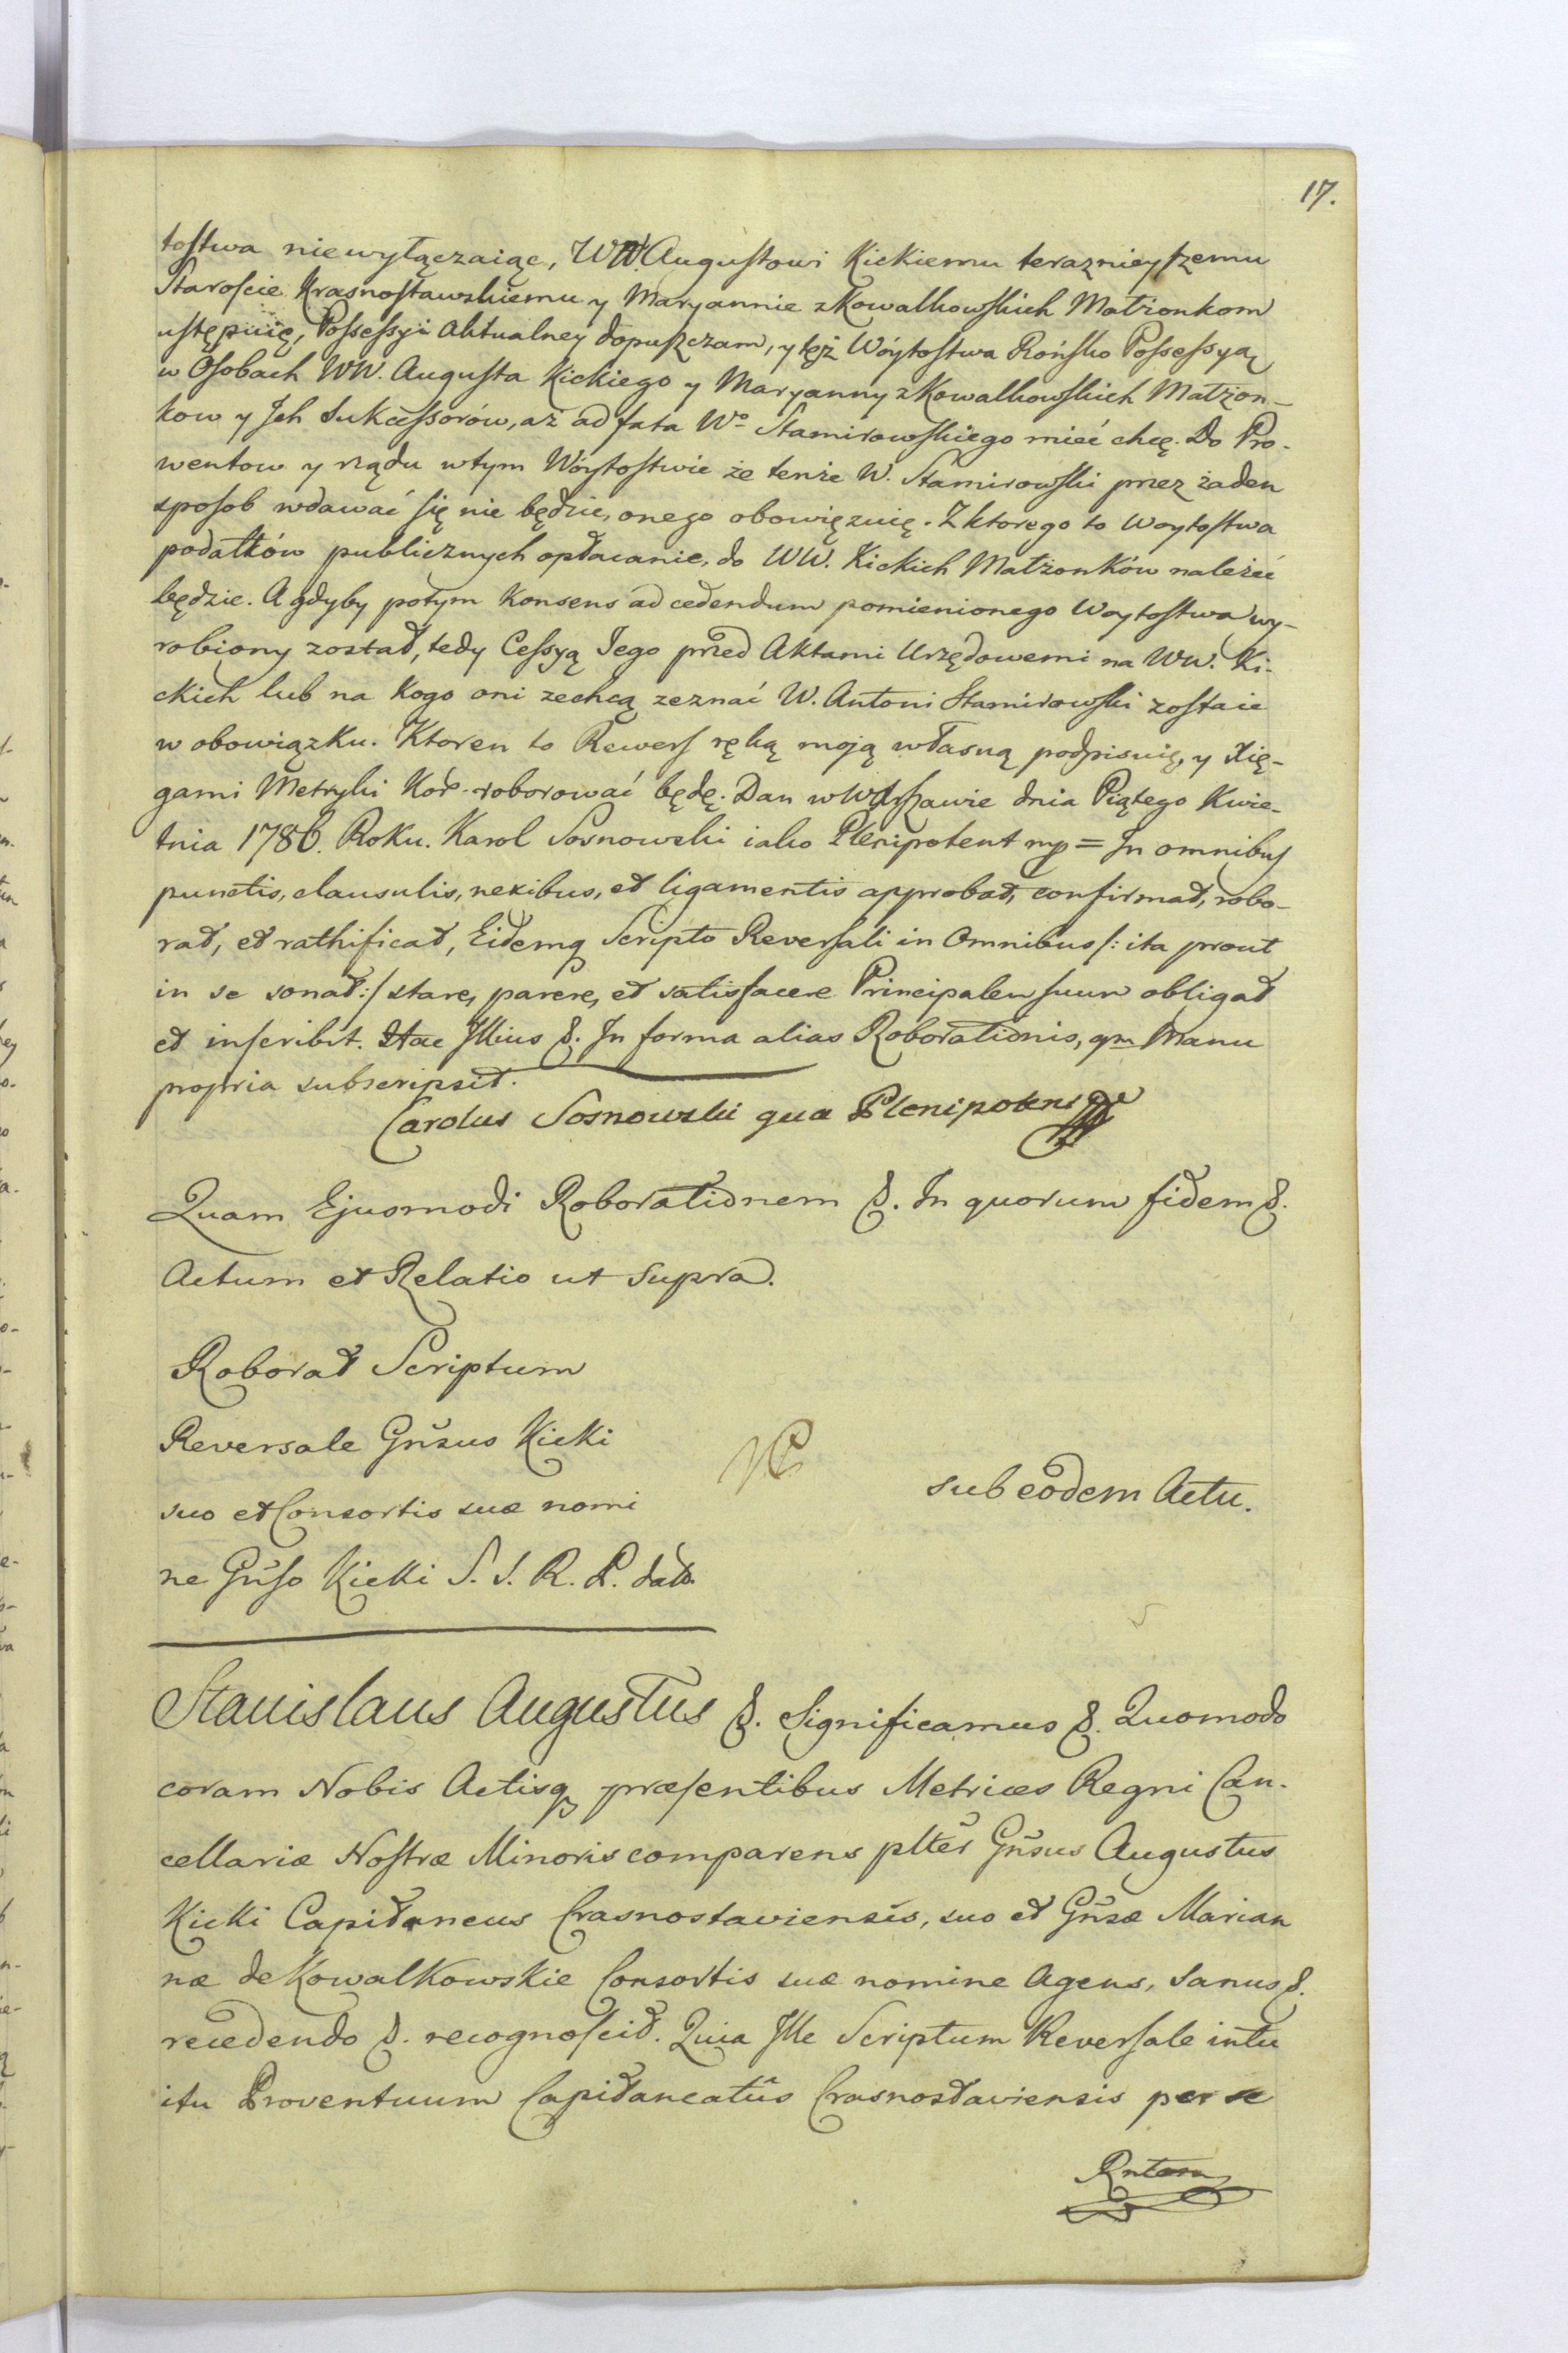 17.
tostwa niewyłączaiąc, WW. Augustowi Kickiemu teraznieyszemu
Staroscie Krasnostawskiemu y Maryannie z Kowalkowskich Małżonkom
ustępuię, Possessyi Aktualney dopuszczam, y tęż Wóytostwa Rońsko Possessyą
w Osobach WW. Augusta Kickiego y Maryanny z Kowalkowskich Małżon-
kow y Jch Sukcessorów, aż ad fata Wo Stamirowskiego mieć chcę. Do Pro-
wentow y rządu w tym Wóytostwie że tenże W. Stamirowski przez żaden
sposob wdawać się nie będzie, onego obowięzuię. Z ktorego to Woytostwa
podatków publicznych opłacanie, do WW. Kickich Małżonków należeć
będzie. A gdyby potym Konsens ad cedendum pomienionego Woytostwa wy-
robiony został, tedy Cessyą Jego przed Aktami Urzędowemi na WW. Ki-
ckich lub na Kogo oni zechcą zeznać W. Antoni Stamirowski zostaie
w obowiązku. Ktoren to Rewers ręką moją własną podpisuię, y Xię-
gami Metryki Kor. roborować będę. Dan w Warszawie dnia Piątego Kwie-
tnia 1786. Roku. Karol Sosnowski iako Plenipotent mp = In omnibus
punctis, clausulis, nexibus, et ligamentis approbat, confirmat, robo-
rat, et rathificat, Eidemq Scripto Reversali in Omnibus /: ita prout
in se sonat :/ stare, parere, et satisfacere Principalem suum obligat
et inscribit. Hac Illius &. In forma alias Roborationis, qm Manu
propria subscripsit.
Carolus Sosnowski qua Plenipotens
Quam Ejusmodi Roborationem &. In quorum fidem &.
Actum et Relatio ut supra.
Roborat Scriptum
Reversale Gnsus Kicki
suo et Consortis suæ nomi
ne Gnso Kicki S. S. R. P. dato
sub eodem Actu.
Stanislaus Augustus &. Significamus &. Quomodo
coram Nobis Actisq præsentibus Metrices Regni Can-
cellariæ Nostræ Minoris comparens plter Gnsus Augustus
Kicki Capitaneus Crasnostaviensis, suo et Gnsæ Marian
næ de Kowalkowskie Consortis suæ nomine Agens, sanus &.
recedendo &. recognoscit. Quia Ille Scriptum Reversale intu
itu Proventuum Capitaneatus Crasnostaviensis per se